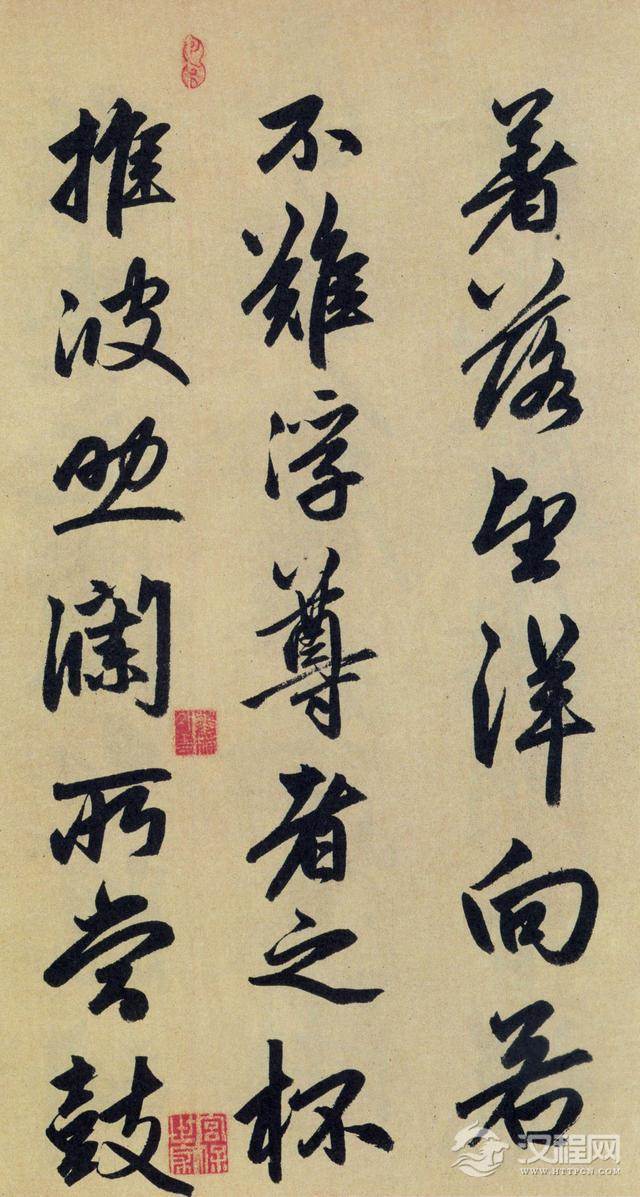 著落望洋向若
不難浮尊者之杯
推波助瀾所當鼓
汉程网
WWW.HTTPCN.COM